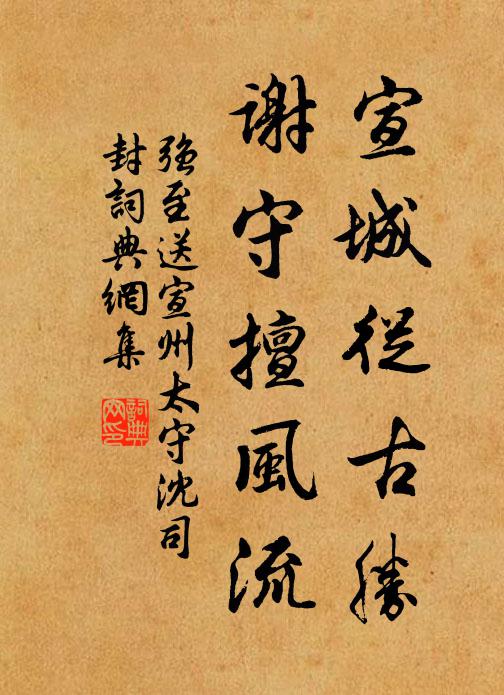 宣城從古勝
謝守擅風流
強至送宣州太守沈司
封詞典網集
詞典網印